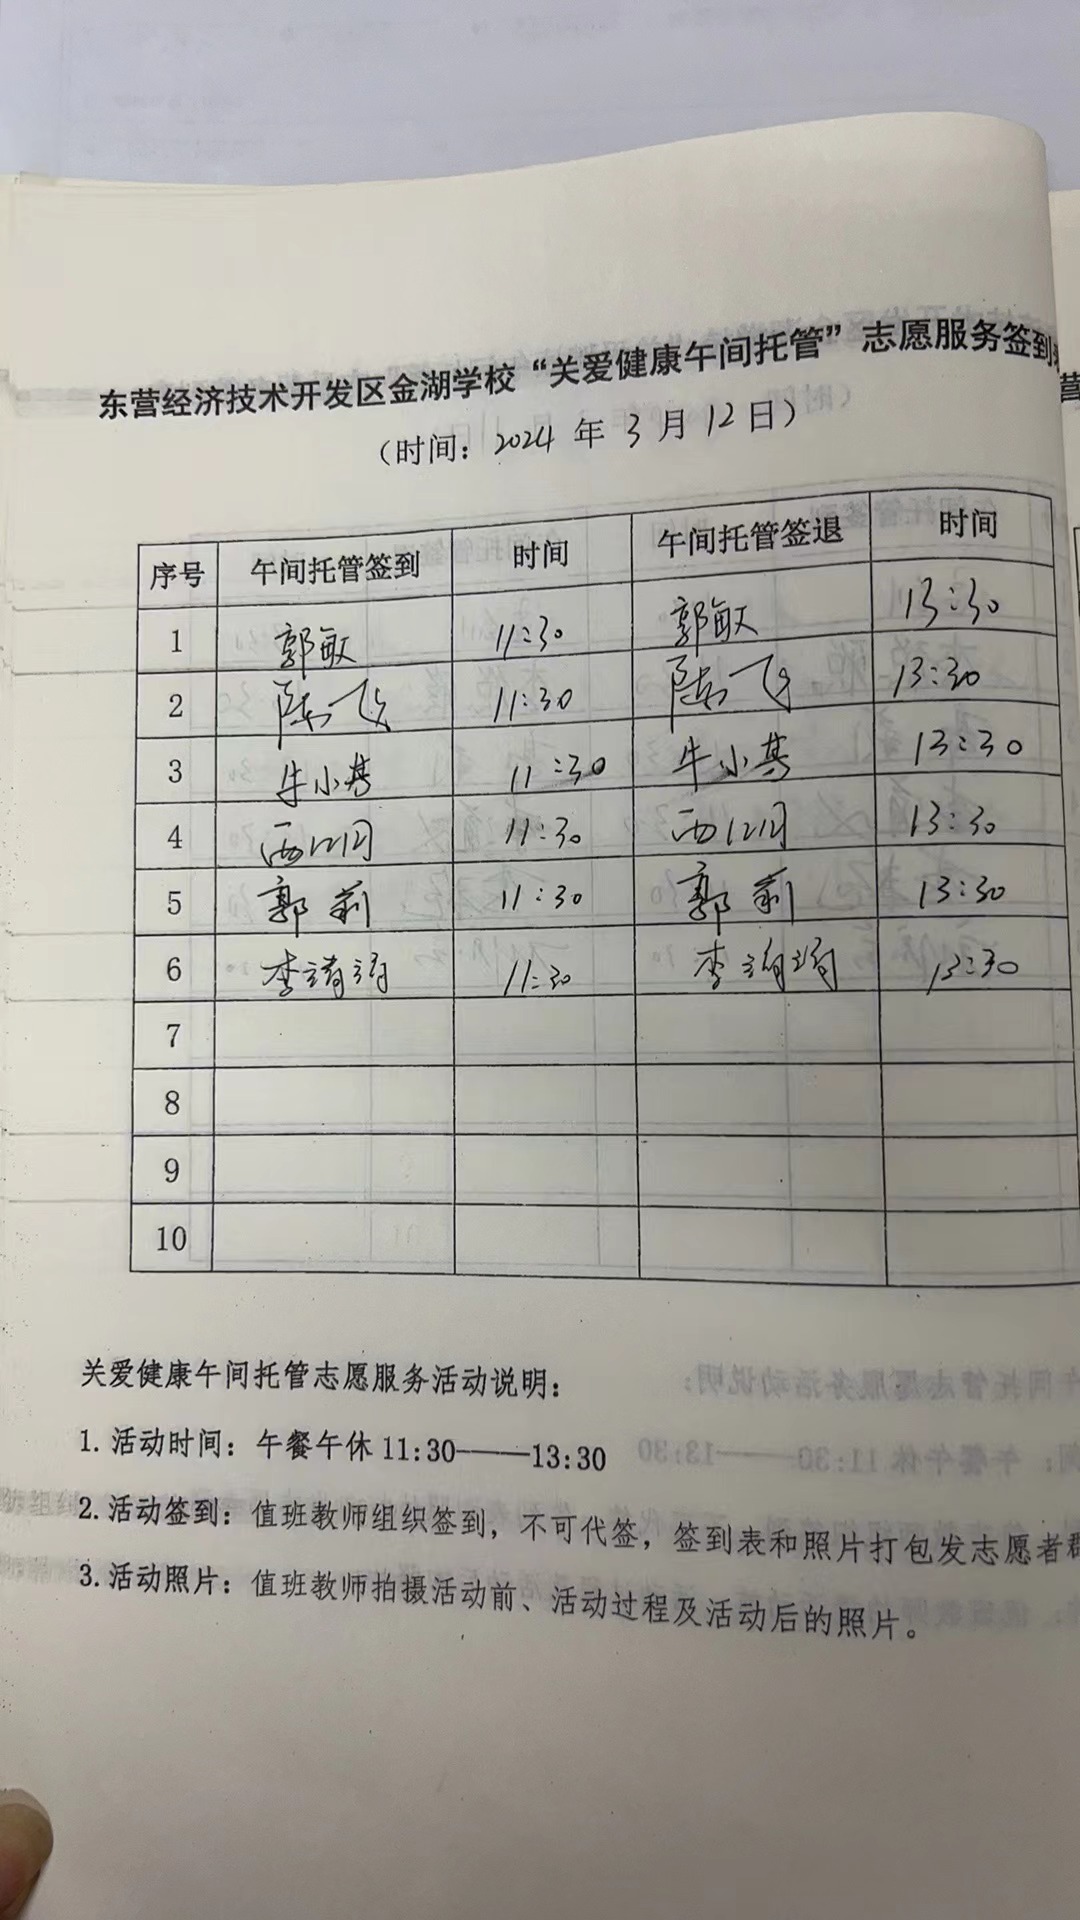 东营经济技术开发区金湖学校“关爱健康午间托管”志愿服务签到
(时间：2024年3月12日)
序号 午间托管签到 时间 午间托管签退 时间
1 郭敏 11:30 郭敏 13:30
2 陆飞 11:30 陆飞 13:30
3 牛小 11:30 牛小 13:30
4 11:30 13:30
5 郭莉 11:30 郭莉 13:30
6 李 11:30 李 13:30
7
8
9
10
关爱健康午间托管志愿服务活动说明：
1.活动时间：午餐午休11:30——13:30
2.活动签到：值班教师组织签到，不可代签，签到表和照片打包发志愿者群
3.活动照片：值班教师拍摄活动前、活动过程及活动后的照片。